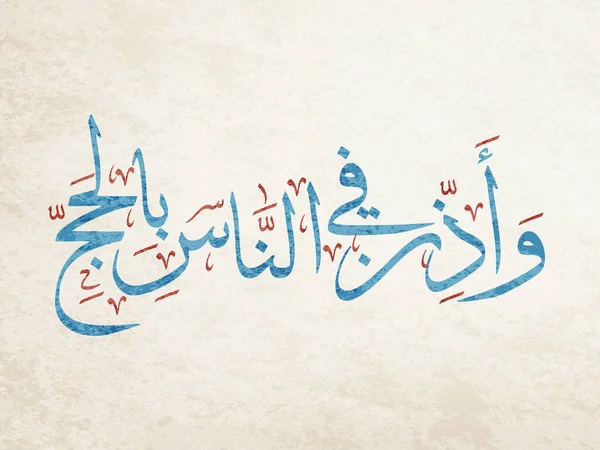 وَأَذِّن فِي النَّاسِ بِالْحَجِّ